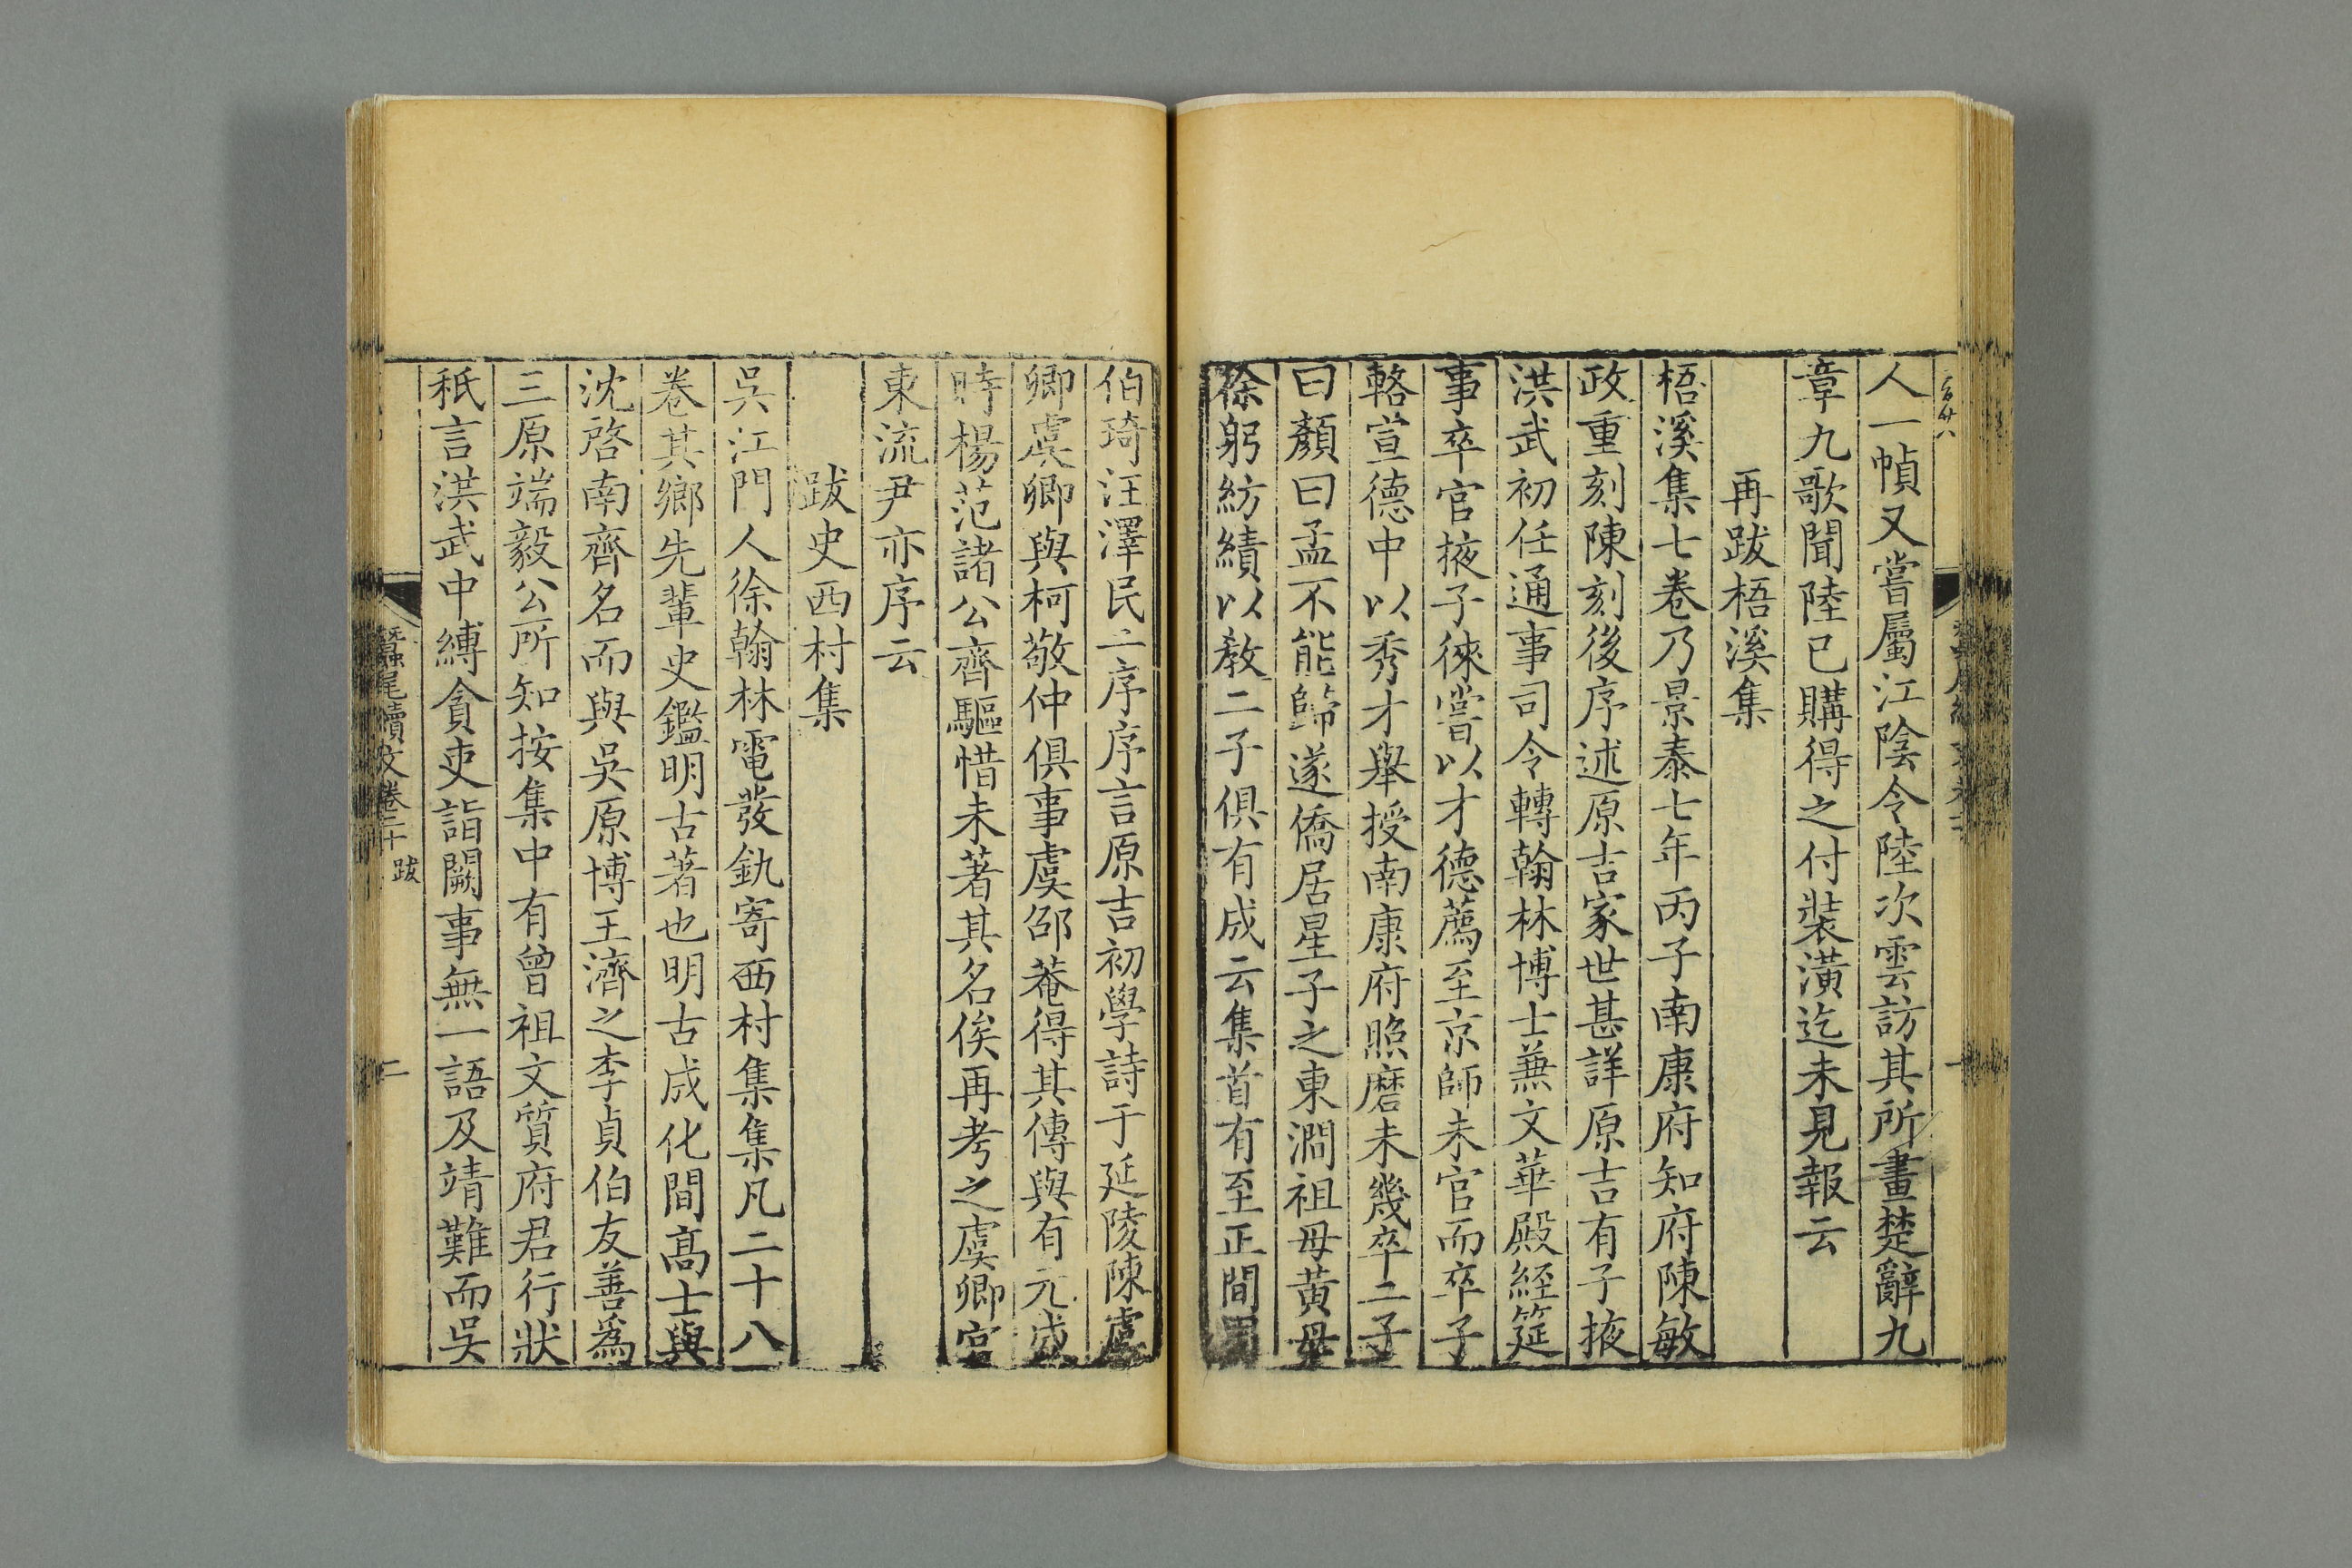 人一幀又嘗屬江陰令陸次雲訪其所畫楚辭九
章九歌聞陸已購得之付裝潢迄未見報云
再跋梧溪集
梧溪集七卷乃景泰七年丙子南康府知府陳敏
政重刻陳刻後序述原吉家世甚詳原吉有子掖
洪武初任通事司令轉翰林博士兼文華殿經筵
事卒官掖子徠嘗以才德薦至京師未官而卒子
輅宣德中以秀才舉授南康府照磨未幾卒二子
曰顏曰孟不能歸遂僑居星子之東澗祖母黃母
徐躬紡績以教二子俱有成云集首有至正間
伯琦汪澤民二序序言原吉初學詩于延陵陳虞
卿虞卿與柯敬仲俱事虞邵菴得其傳與有元盛
時楊范諸公齊驅惜未著其名俟再考之虞卿官
東流尹亦序云
跋史西村集
吳江門人徐翰林電發釚寄西村集集凡二十八
卷其鄉先輩史鑑明古著也明古成化間高士與
沈啓南齊名而與吳原博王濟之李貞伯友善為
三原端毅公所知按集中有曾祖文質府君行狀
秖言洪武中縛貪吏詣闕事無一語及靖難而吳
蠶尾續文卷二十 跋 二